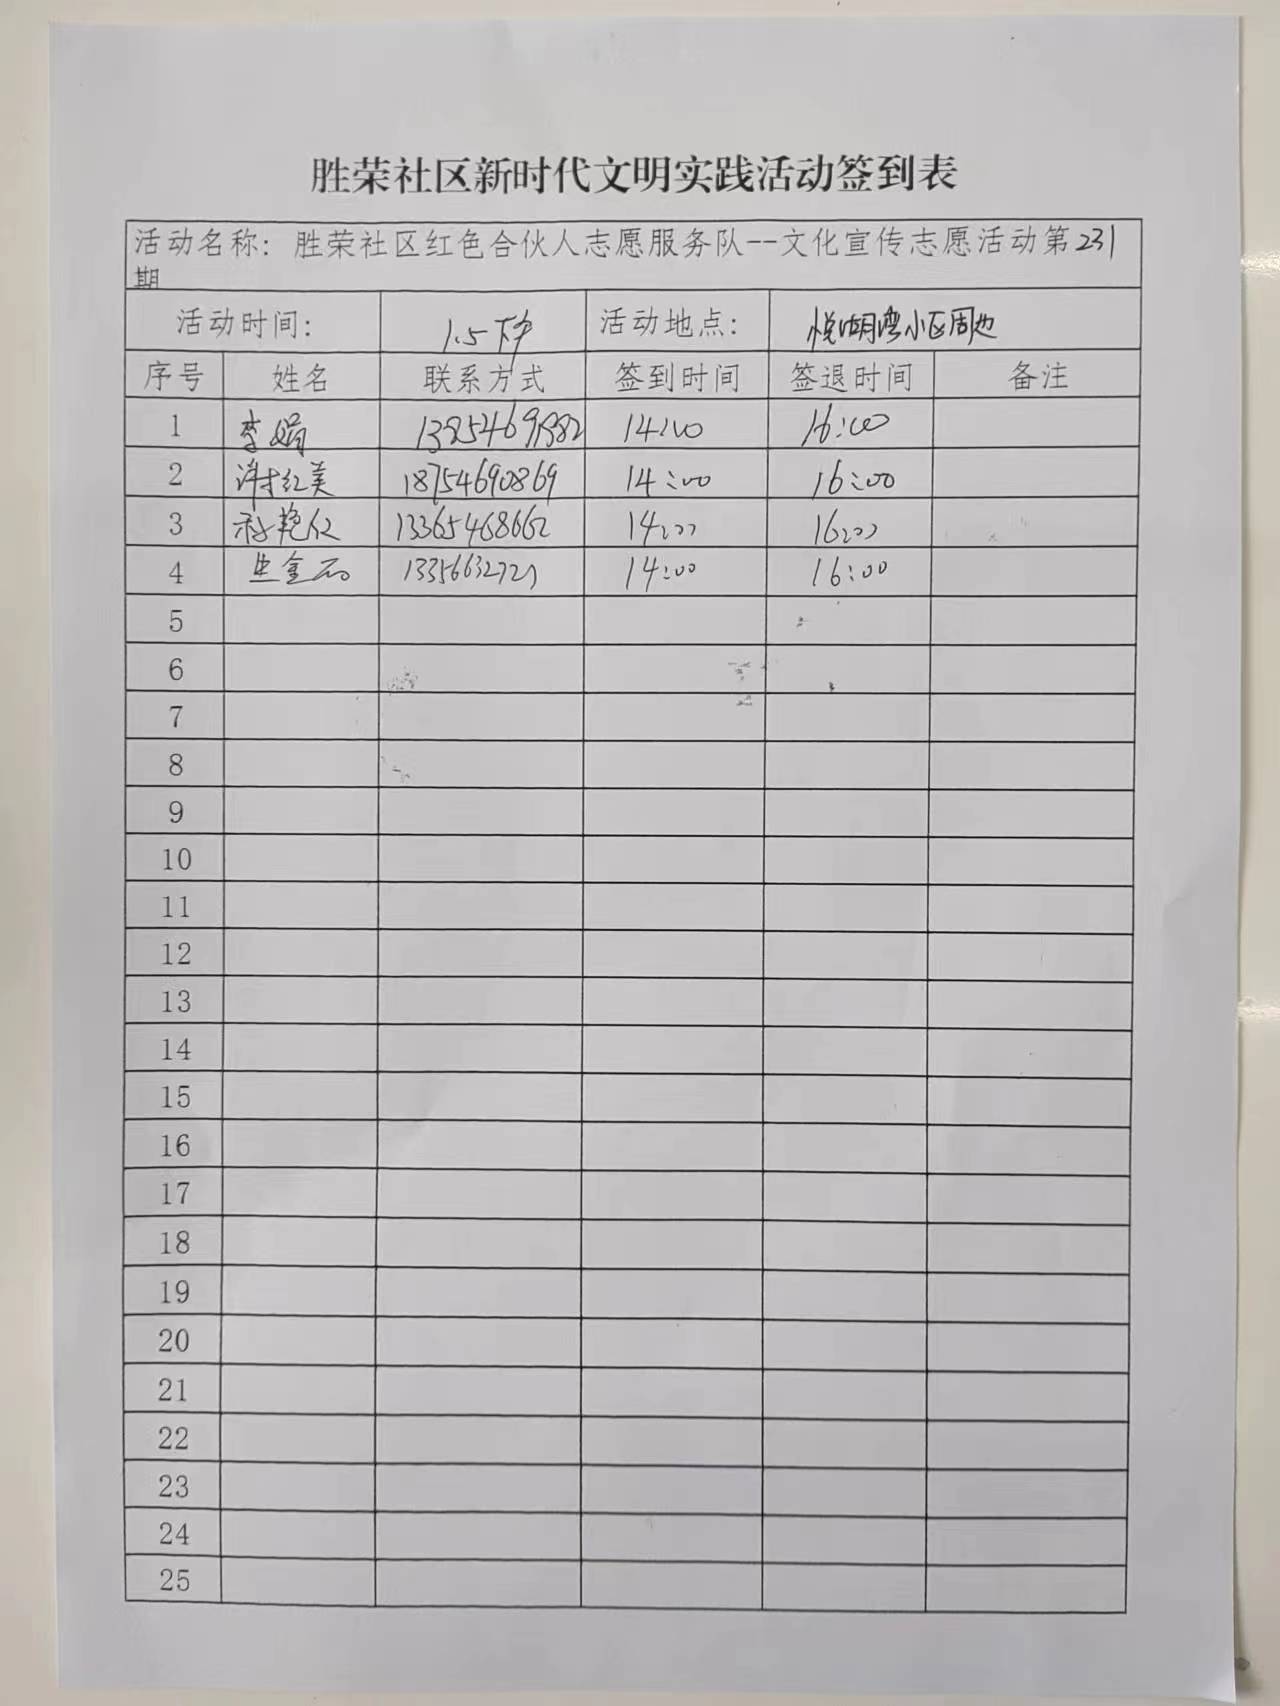 胜荣社区新时代文明实践活动签到表
活动名称：胜荣社区红色合伙人志愿服务队--文化宣传志愿活动第231
期
活动时间： 1.5下午 活动地点： 悦湖湾小区周边
序号 姓名 联系方式 签到时间 签退时间 备注
1 李娟 14:00 16:00
2 谢红美 18754690869 14:00 16:00
3 13365468662 14:00 16:00
4 14:00 16:00
5
6
7
8
9
10
11
12
13
14
15
16
17
18
19
20
21
22
23
24
25